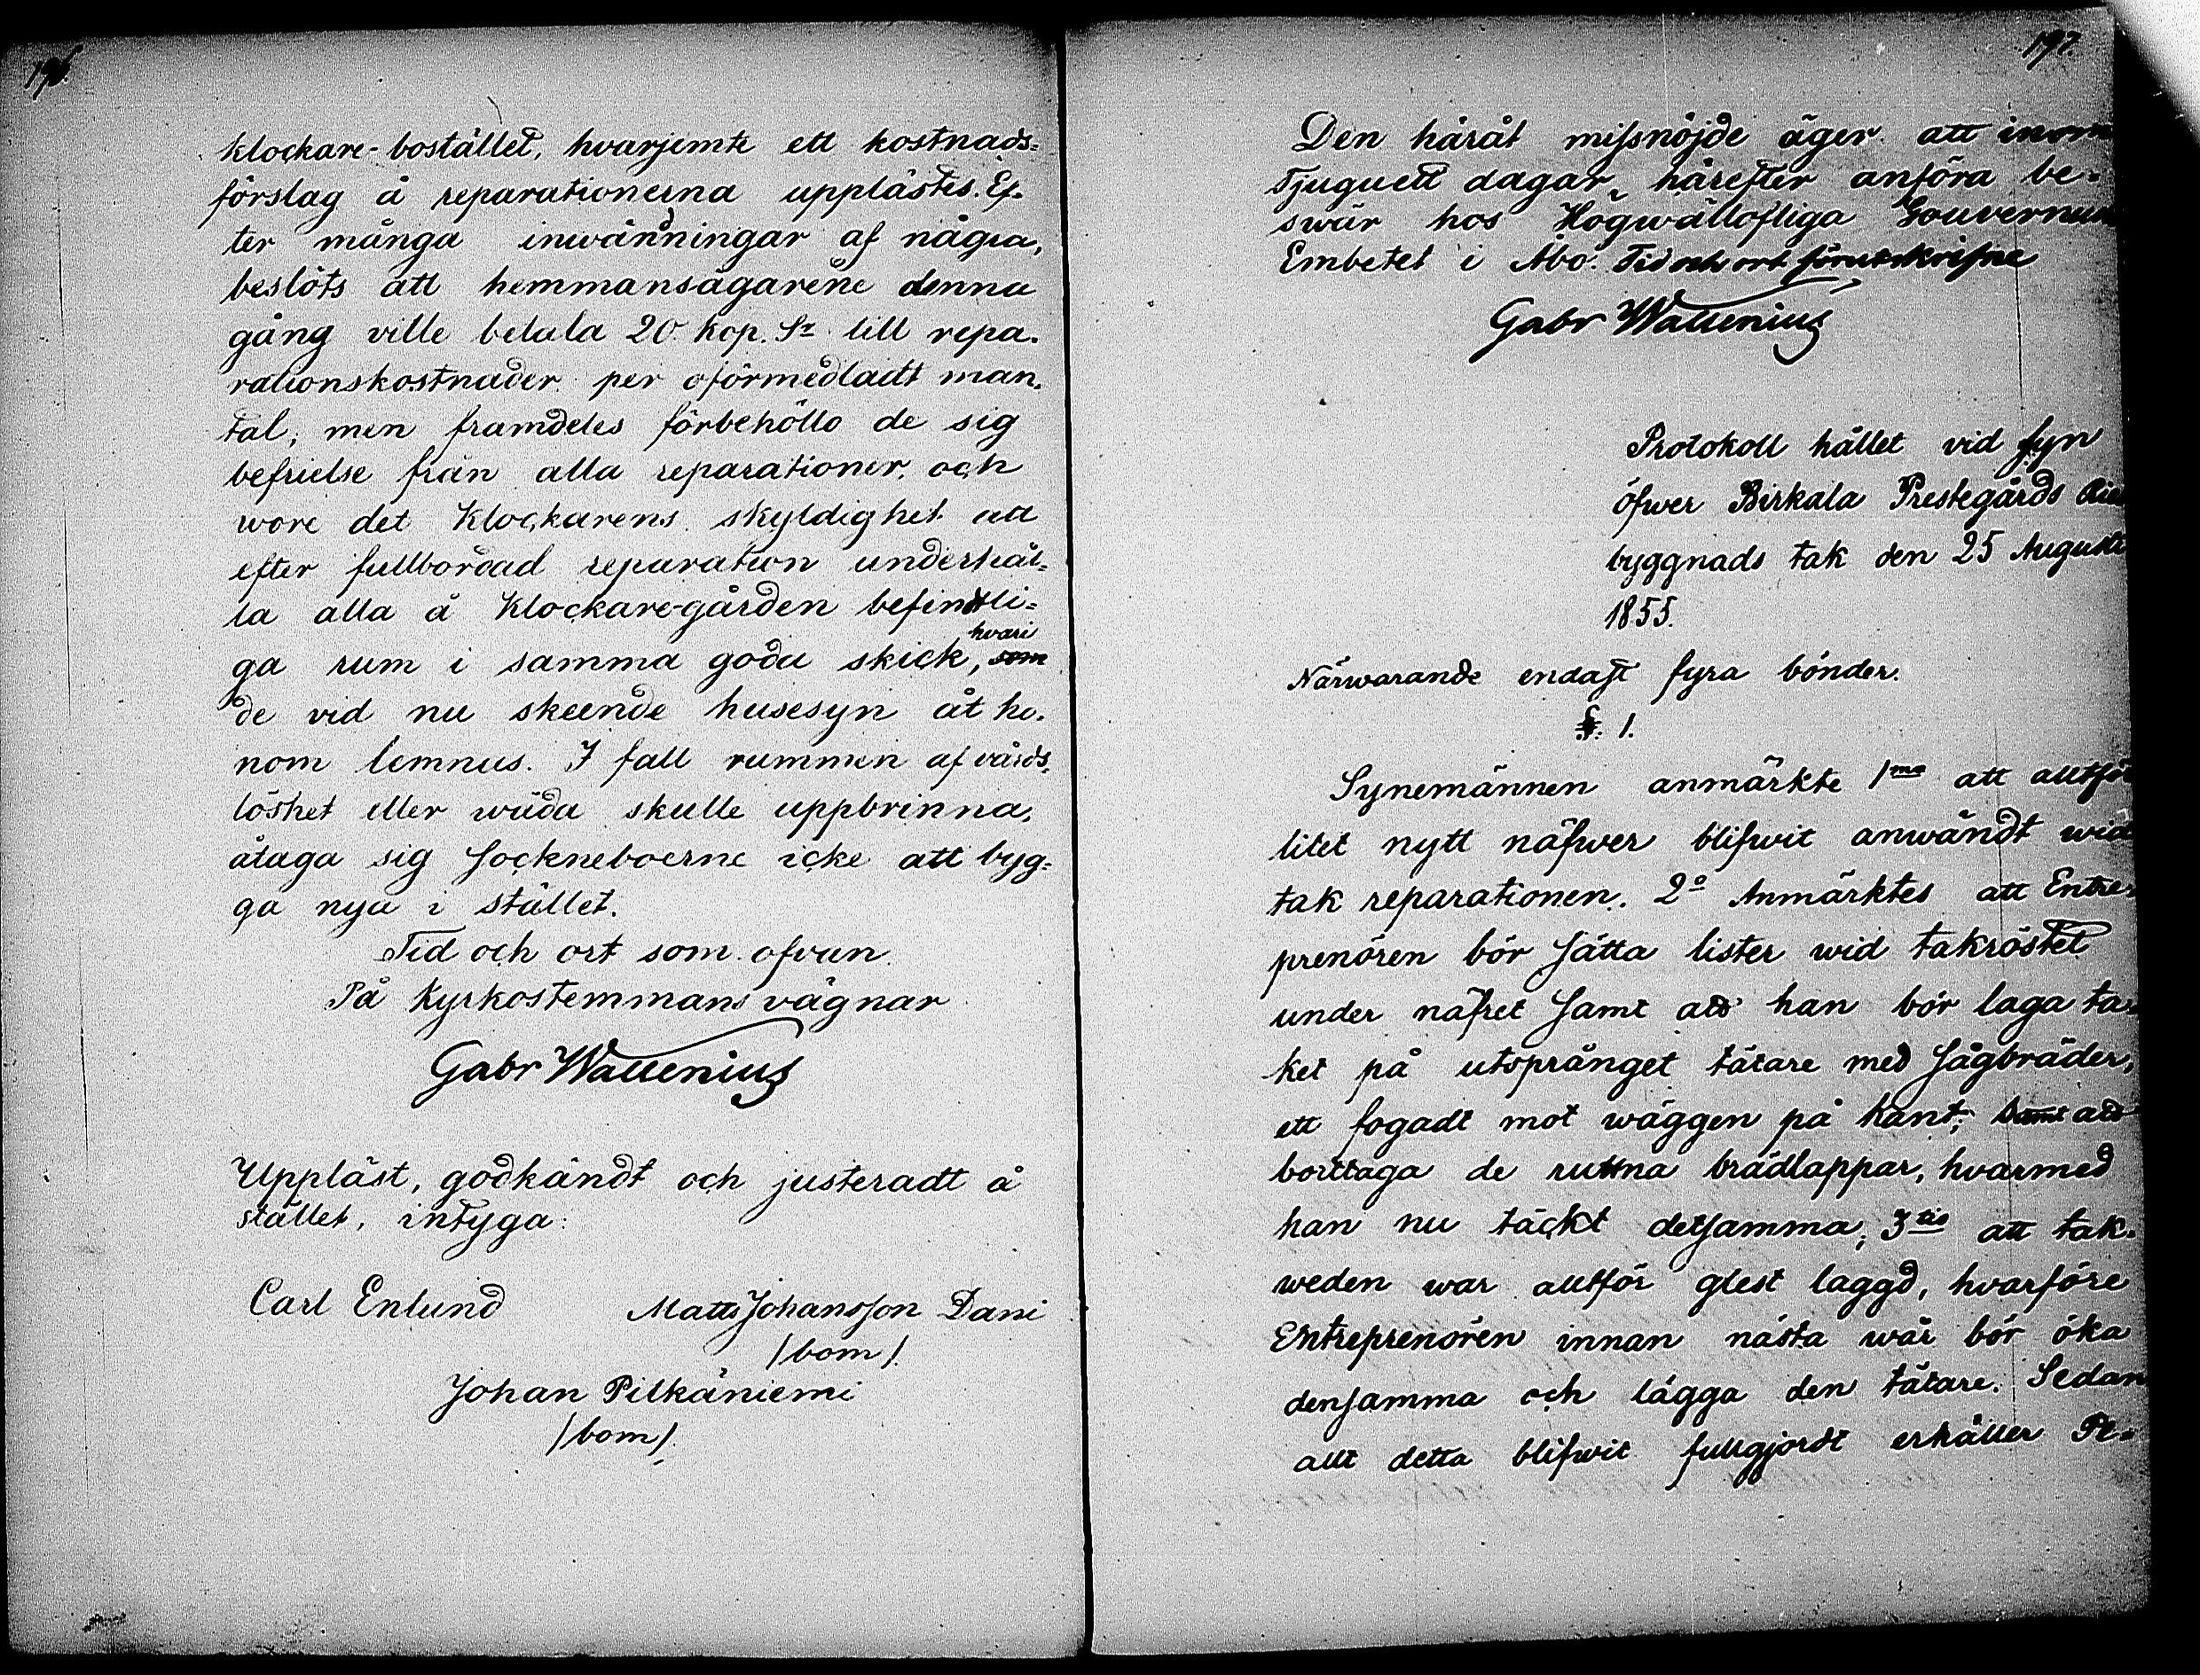 196.
klockare-bostället, hvarjemte ett kostnads=
förslag å reparationerna upplästes. Ef-
ter många inwändningar af några,
beslöts att hemmansägarene denna
gång ville betala 20 kop. Sr till repa-
rationskostnader per oförmedladt man-
tal; men framdeles förbehöllo de sig
befrielse från alla reparationer, och
wore det Klockarens skyldighet att
efter fullbordad reparation underhål-
la alla å Klockare-gården befintli=
ga rum i samma goda skick, som hvari
de vid nu skeende husesyn åt ho-
nom lemnas. I fall rummen af vårds-
löshet eller wåda skulle uppbrinna,
åtaga sig Sockneboerne icke att byg-
ga nya i stället.
Tid och ort som ofvan
På Kyrkostemmans vägnar
Gabr Wallenius
Uppläst, godkändt och justeradt å
stället, intyga:
Carl Enlund Matts Johansson Dani
/bom/.
Johan Pitkäniemi
/bom/.
197.
Den häråt missnöjde äger att inom
Tjuguett dagar härefter anföra be-
swär hos Högwällofliga Gouverneurs
Embetet i Åbo. Tid och ort förutskrifne
Gabr Wallenius
Protokoll hållet vid syn
öfwer Birkala Prestegårds
byggnads tak den 25 Augusti
1855.
Närwarande endast fyra bönder.
§. 1.
Synemännen anmärkte 1mo att alltför
litet nytt näfwer blifwit anwändt wid
tak reparationen. 2o Anmärktes att Entre-
prenören bör sätta lister wid takröstet
under näfret samt att han bör laga ta-
ket på utsprånget tätare med sågbräder,
ett fogadt mot wäggen på kant; samt att
borttaga de ruttna brädlappar, hvarmed
han nu täckt detsamma; 3tio att tak-
weden war alltför glest laggd, hvarföre
Entreprenören innan nästa wår bör öka
densamma och lägga den tätare. Sedan
allt detta blifwit fullgjordt erhåller Pe-